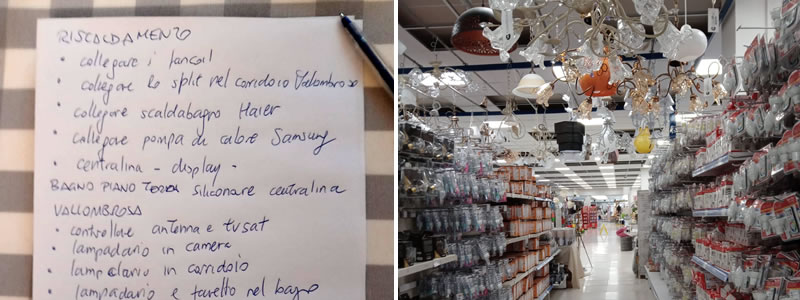 RISCALDAMENTO
• collegare i fancoil
• collegare lo split nel corridoio Vallombrosa
• collegare scaldabagno Haier
• collegare pompa di calore Samsung
• centralina - display -
BAGNO PIANO TERRA siliconare centralina
VALLOMBROSA
• controllare antenna e tvsat
• lampadario in camera
• lampadario in corridoio
• lampadario e faretto nel bagno